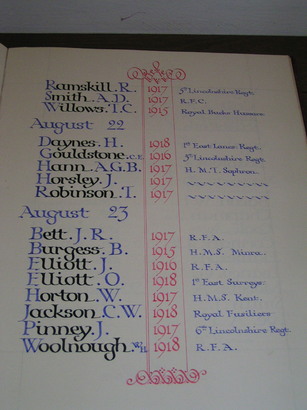 Ramskill. R. 1917 5th Lincolnshire Regt.
Smith. A.D. 1917 R.F.C.
Willows. T.C. 1915 Royal Bucks Hussars
August 22
Daynes. H. 1918 1st East Lancs. Regt.
Gouldstone. C.E. 1916 5th Lincolnshire Regt.
Hann. A.G.B. 1917 H.M.T.
Horsley. J. 1917
Robinson. T. 1917
August 23
Bett. J. R. 1917 R.F.A.
Burgess. B. 1915 H.M.S.
Elliott. J. 1916 R.F.A.
Elliott. O. 1918 1st East Surreys.
Horton. W. 1917 H.M.S. Kent.
Jackson. C.W. 1918 Royal Fusiliers
Pinney. J. 1917 6th Lincolnshire Regt.
Woolnough. W.H. 1918 R.F.A.